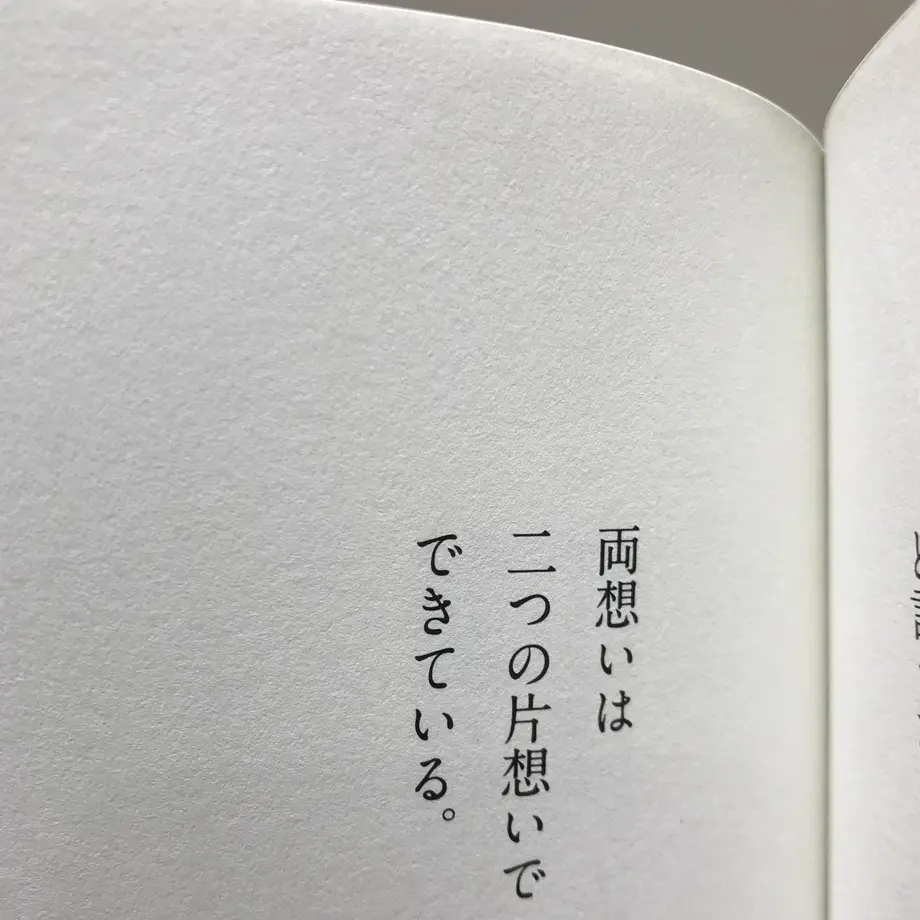 両想いは
二つの片想いで
できている。